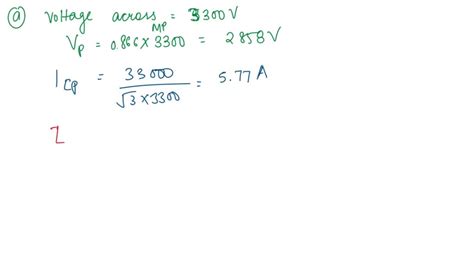 ⓐ Voltage across MP = 3300 V
Vp = 0.866 × 3300 = 2858 V
I cp = 33000 / √3 × 3300 = 5.77 A
Z